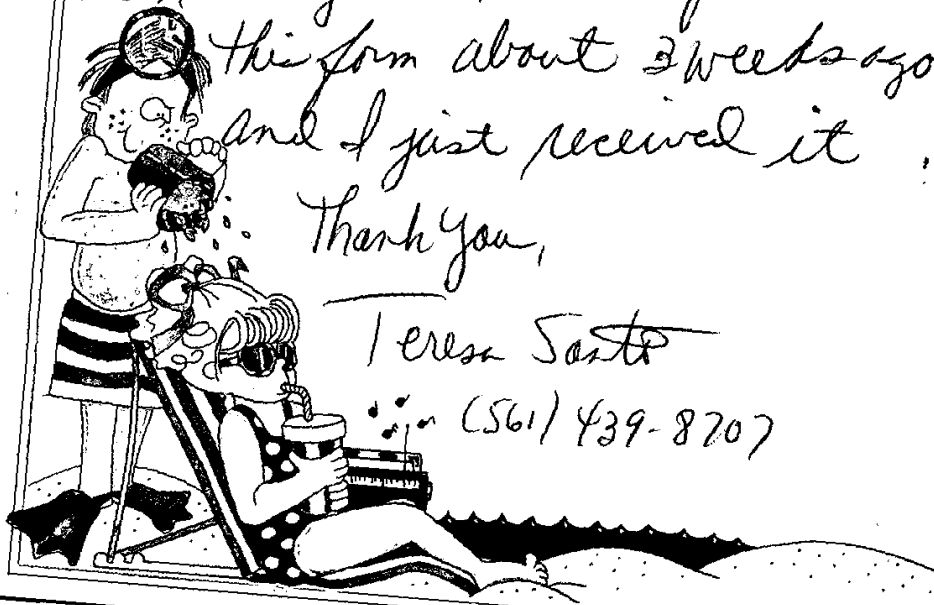 this form about 3 weeks ago
and I just received it.
Thank You,
Teresa Santo
(561) 439-8707